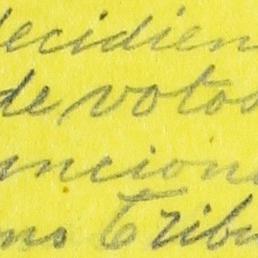 decidien
de votos
uncion
ns Tribu